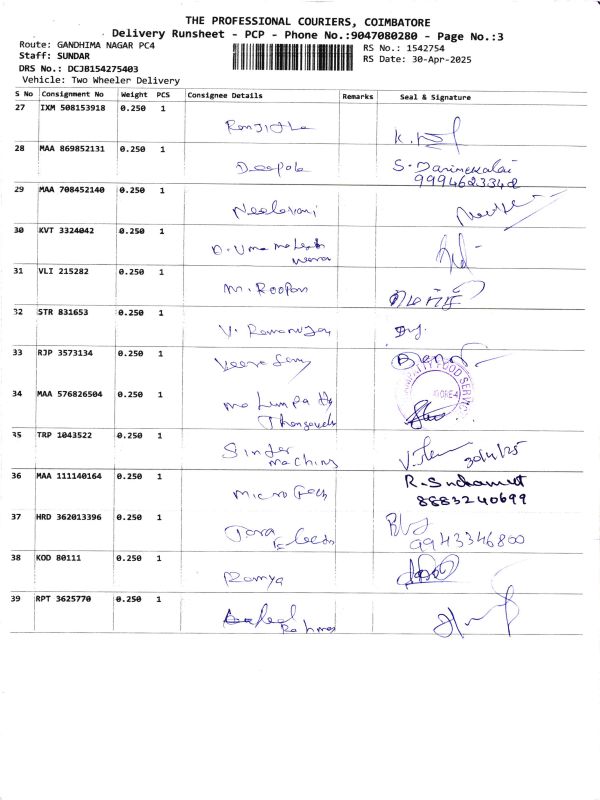 THE PROFESSIONAL COURIERS, COIMBATORE
Delivery Runsheet - PCP - Phone No.:9047080280 - Page No.:3
Route: GANDHIMA NAGAR PC4
RS No.: 1542754
Staff: SUNDAR
RS Date: 30-Apr-2025
DRS No.: DCJB154275403
Vehicle: Two Wheeler Delivery
S No Consignment No Weight PCS Consignee Details Remarks Seal & Signature
27 IXM 508153918 0.250 1
Ranjitha
28 MAA 869852131 0.250 1
Deepak S.
9994623342
29 MAA 708452140 0.250 1
Neelavani
30 KVT 3324042 0.250 1
D. Uma mahesh
31 VLI 215282 0.250 1
M. Roopan
32 STR 831653 0.250 1
V. Ramanujan
33 RJP 3573134 0.250 1
Veera Samy
34 MAA 576826504 0.250 1
FOOD SERVICE
35 TRP 1043522 0.250 1
Singer
Machins 30/4/25
36 MAA 111140164 0.250 1
Micro Tech R.
8883240699
37 HRD 362013396 0.250 1
9943346800
38 KOD 80111 0.250 1
Ramya
39 RPT 3625770 0.250 1
Rahman